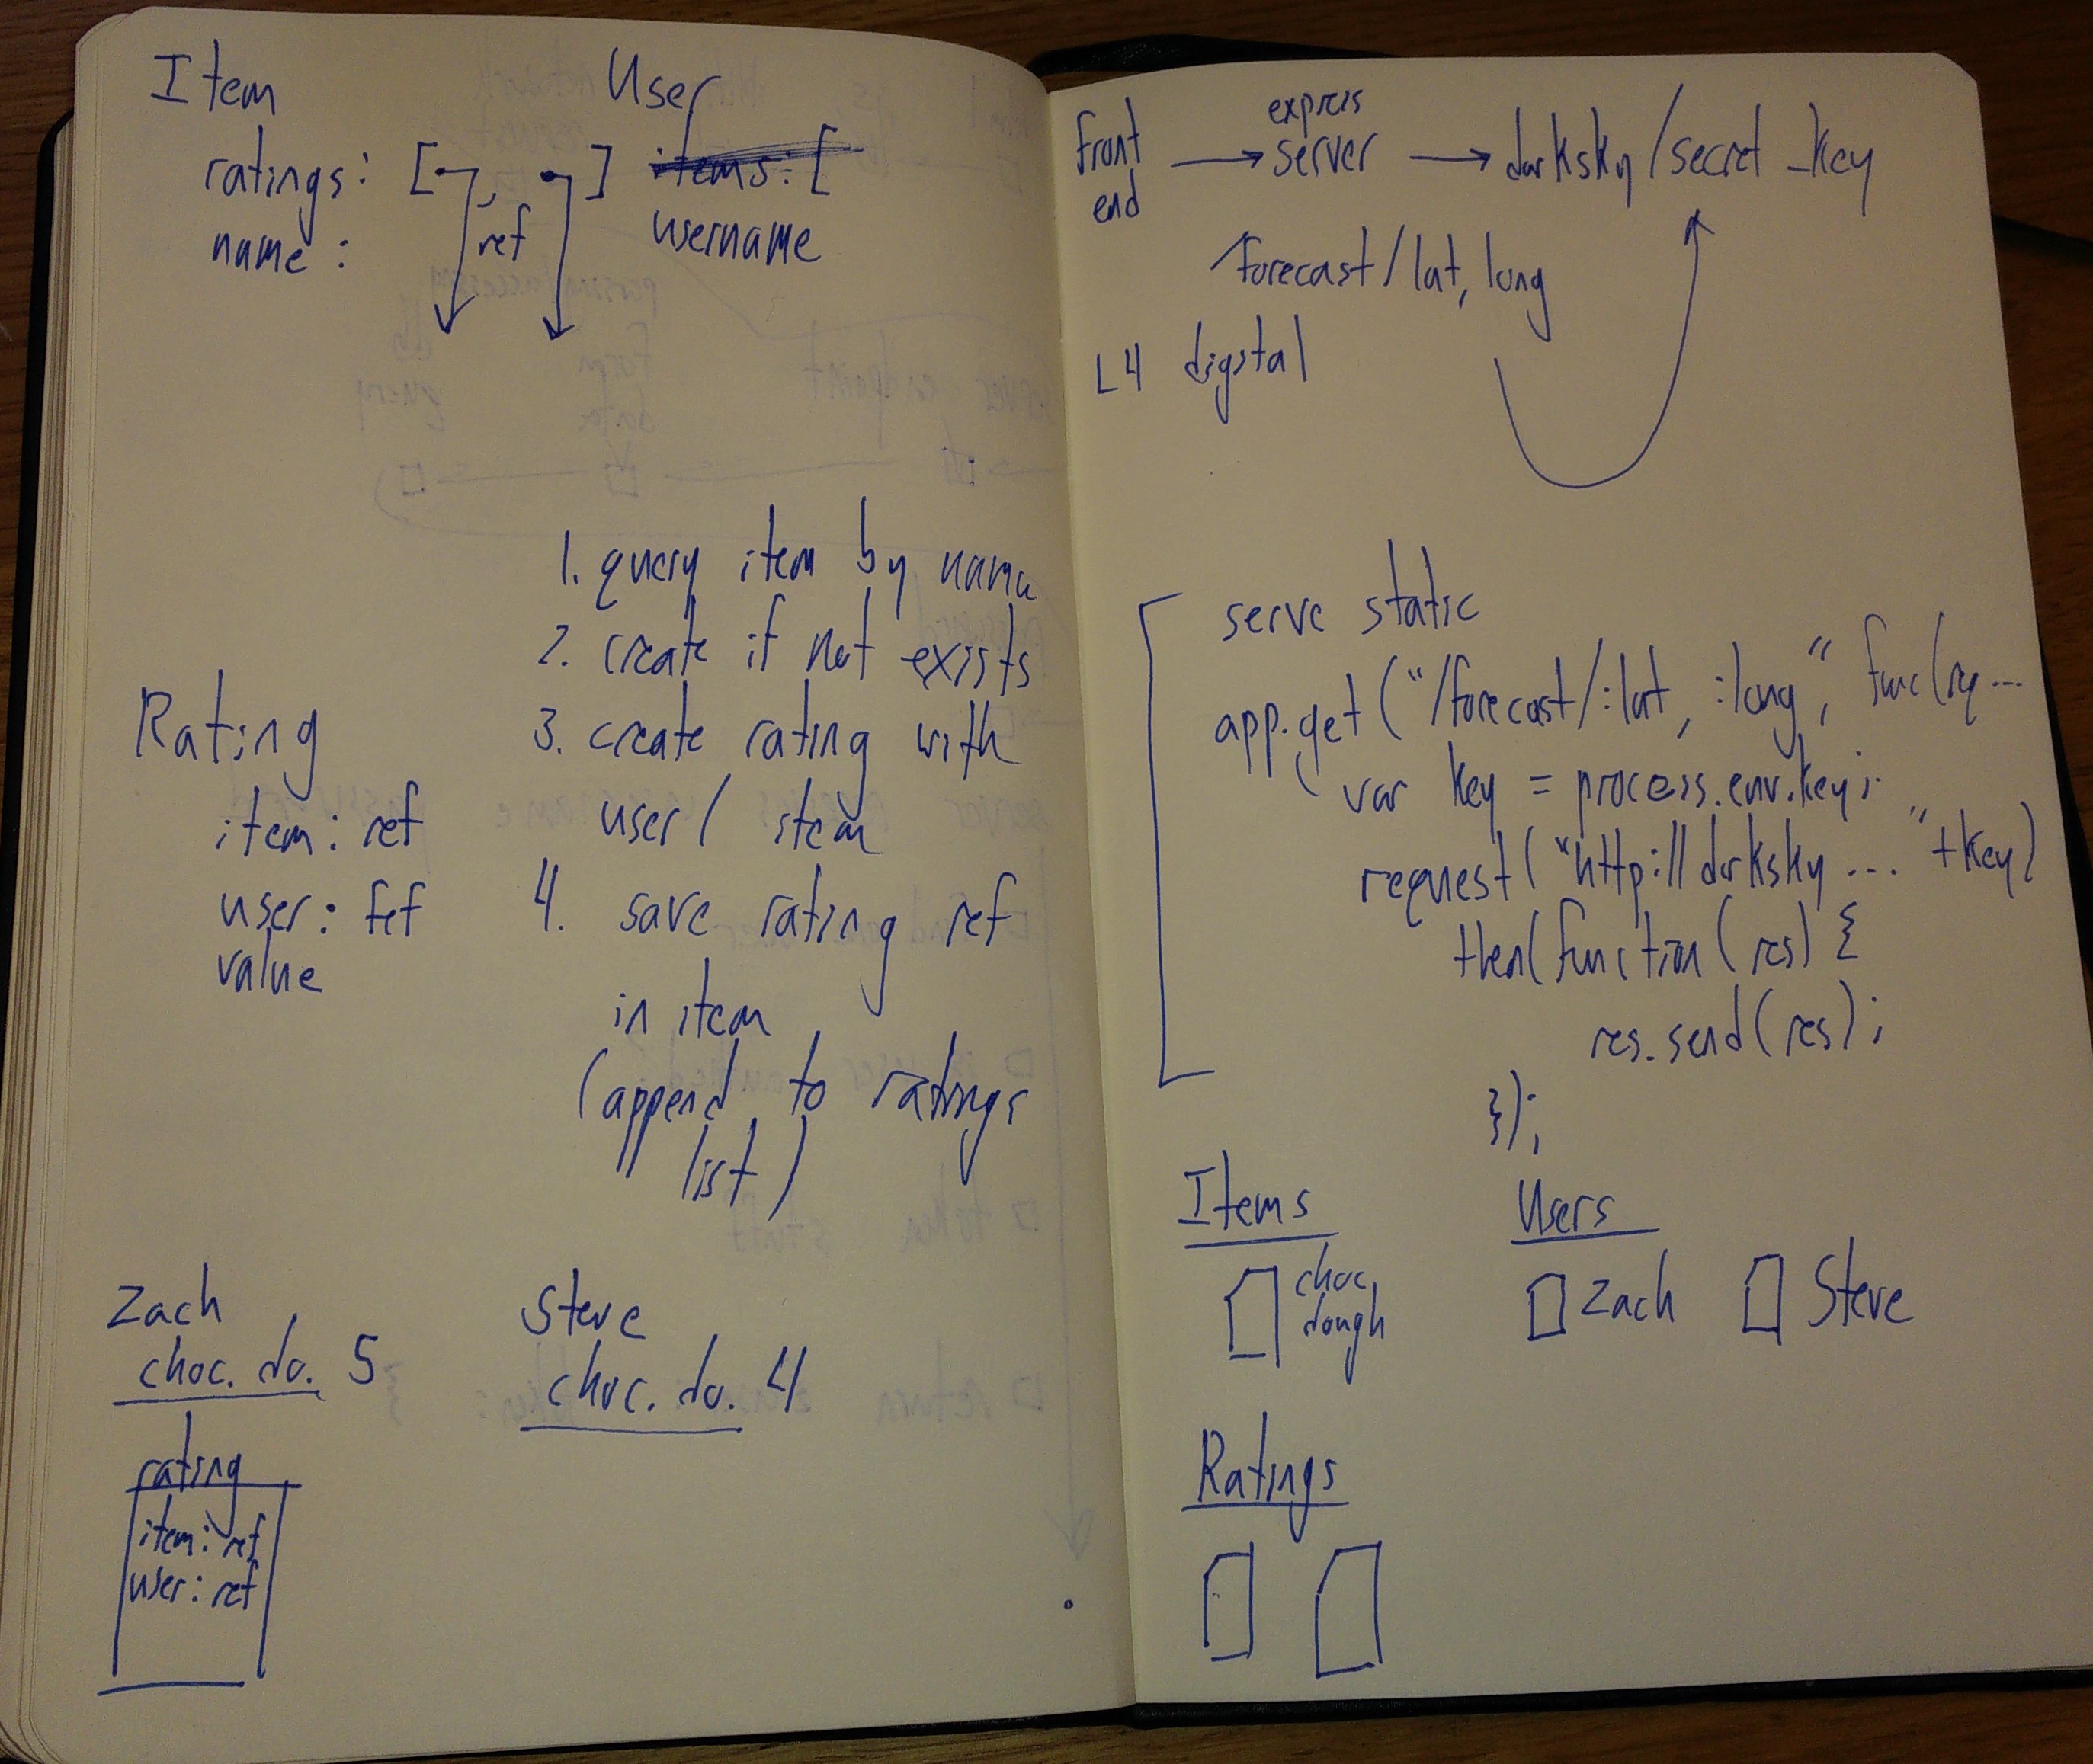 Item
ratings: [ , ]
name :
ref
User
items: [
username
1. query item by name
2. create if not exists
3. create rating with
user / item
4. save rating ref
in item
(append to ratings
list)
Rating
item: ref
user: ref
value
Zach
choc. do. 5
rating
item: ref
user: ref
Steve
choc. do. 4
front
end
→
express
server
→ darksky/secret_key
/forecast/lat, long
L4 digstal
serve static
app.get("/forecast/:lat, :long", func(rq ...
var key = process.env.key;
request("http://darksky .... "+key)
then(function(res) {
res.send(res);
});
Items
choc.
dough
Users
Zach
Steve
Ratings